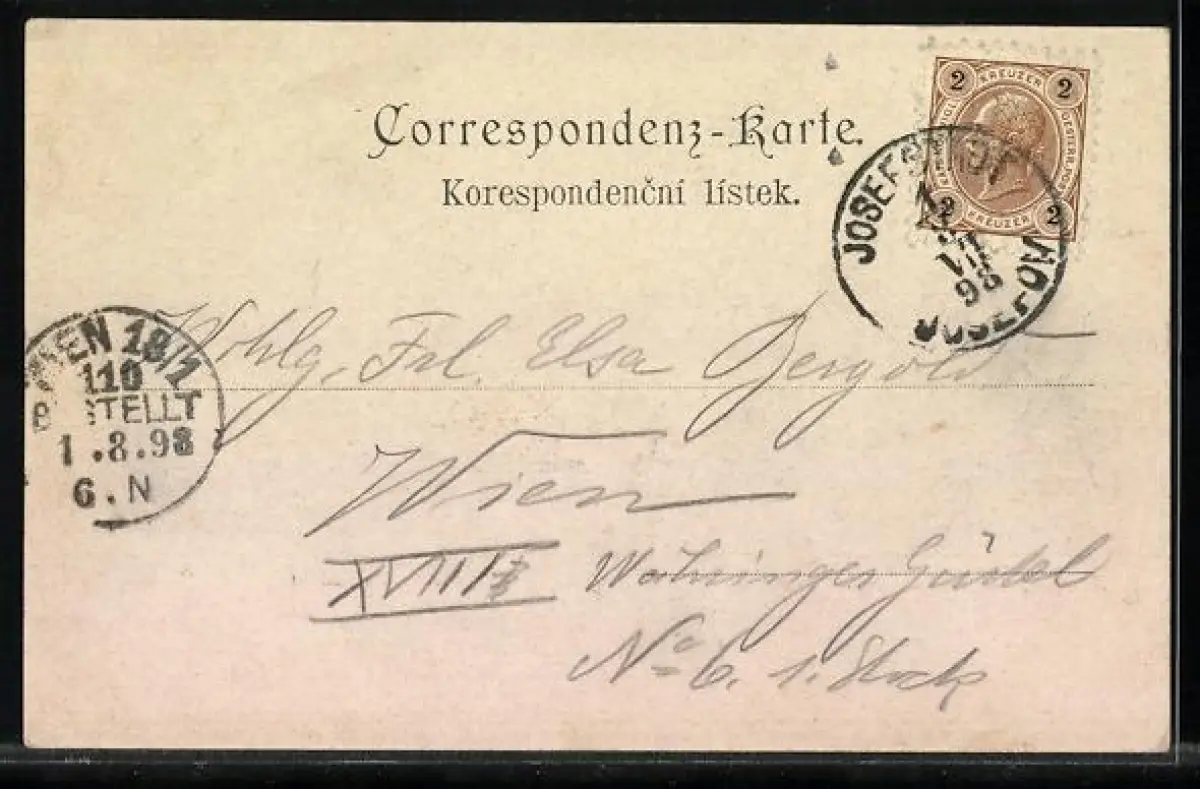 Correspondenz-Karte.
Korespondenční lístek.
2 KREUZER 2
2 KREUZER 2
JOSEFSTADT
31
VII
98
JOSEFOV
WIEN 18/1
110
BESTELLT
1.8.98
6.N
Wohlg. Frl. Elsa Bergold
Wien
XVIII/
Währinger Gürtel
No 6. 1. Stock